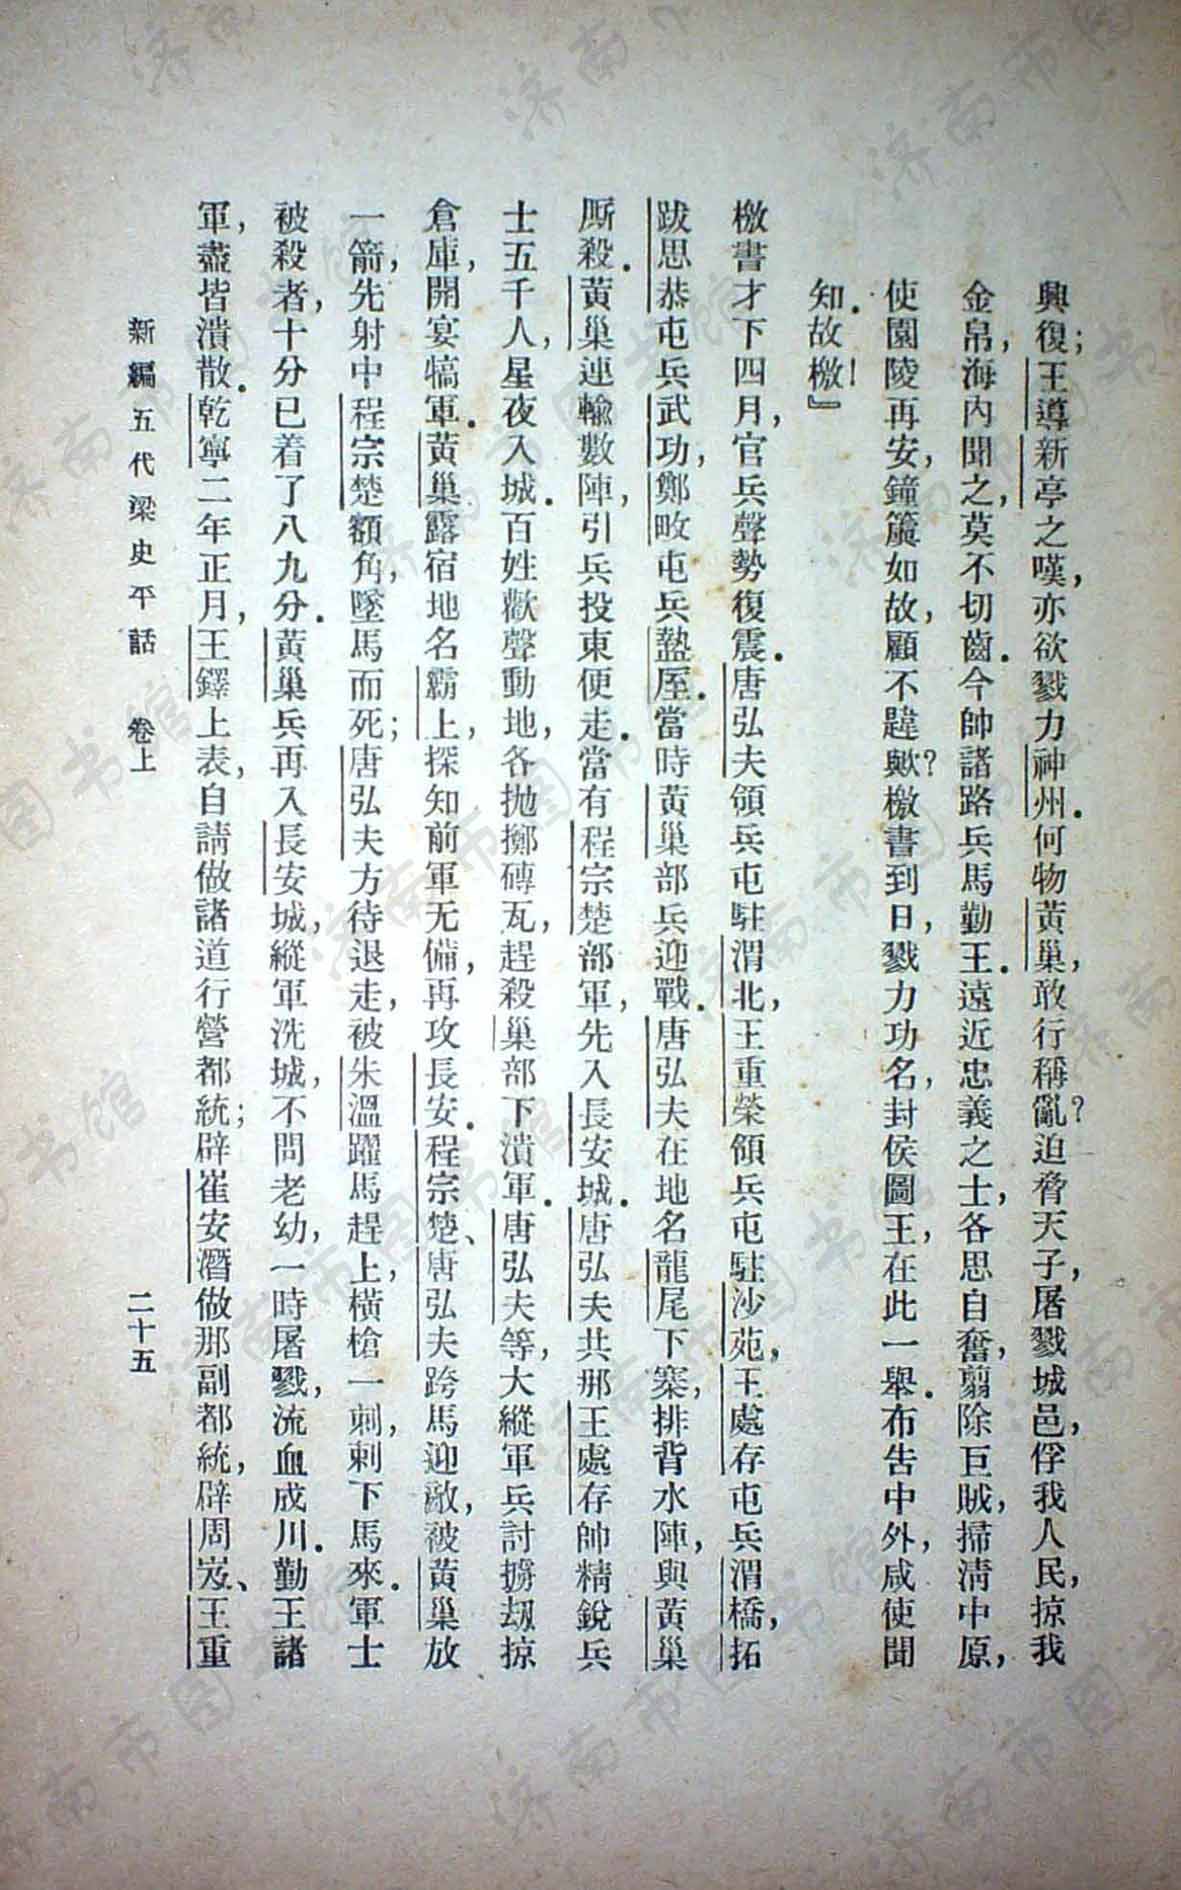 興復；王導新亭之嘆，亦欲戮力神州．何物黃巢，敢行稱亂？迫脅天子，屠戮城邑，俘我人民，掠我
金帛，海內聞之，莫不切齒．今帥諸路兵馬勤王．遠近忠義之士，各思自奮，翦除巨賊，掃清中原，
使園陵再安，鐘簴如故，顧不韙歟？檄書到日，戮力功名，封侯圖王，在此一舉．布告中外，咸使聞
知．故檄！』
檄書才下四月，官兵聲勢復震．唐弘夫領兵屯駐渭北，王重榮領兵屯駐沙苑，王處存屯兵渭橋，拓
跋思恭屯兵武功，鄭畋屯兵盩厔．當時黃巢部兵迎戰．唐弘夫在地名龍尾下寨，排背水陣，與黃巢
厮殺．黃巢連輸數陣，引兵投東便走．當有程宗楚部軍，先入長安城．唐弘夫共那王處存帥精銳兵
士五千人，星夜入城．百姓歡聲動地，各拋擲磚瓦，趕殺巢部下潰軍．唐弘夫等，大縱軍兵討擄刼掠
倉庫，開宴犒軍．黃巢露宿地名霸上，探知前軍无備，再攻長安．程宗楚、唐弘夫跨馬迎敵，被黃巢放
一箭，先射中程宗楚額角，墜馬而死；唐弘夫方待退走，被朱溫躍馬趕上，橫槍一刺，刺下馬來．軍士
被殺者，十分已着了八九分．黃巢兵再入長安城，縱軍洗城，不問老幼，一時屠戮，流血成川．勤王諸
軍，盡皆潰散．乾寧二年正月，王鐸上表，自請做諸道行營都統；辟崔安潛做那副都統，辟周岌、王重
新編五代梁史平話　卷上　二十五
济南市图书馆